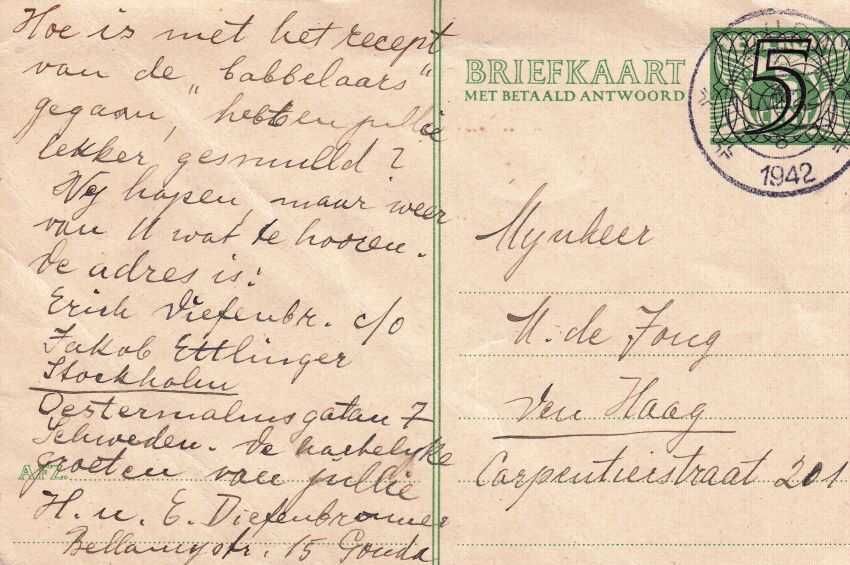 Hoe is met het recept
van de "babbelaars"
gegaan, hebben jullie
lekker gesmulld?
Wy hopen maar weer
van U wat te hooren.
De adres is:
Erich Diefenbr. c/o
Jakob Ettlinger
Stockholm
Oestermalmsgatan 7
Schweden. De hartelyke
groeten van jullie
AFZ.
H. u. E. Diefenbronner
Bellamystr. 15 Gouda
BRIEFKAART
MET BETAALD ANTWOORD
5
1942
Mynheer
de Jong
Den Haag
Carpentierstraat 201